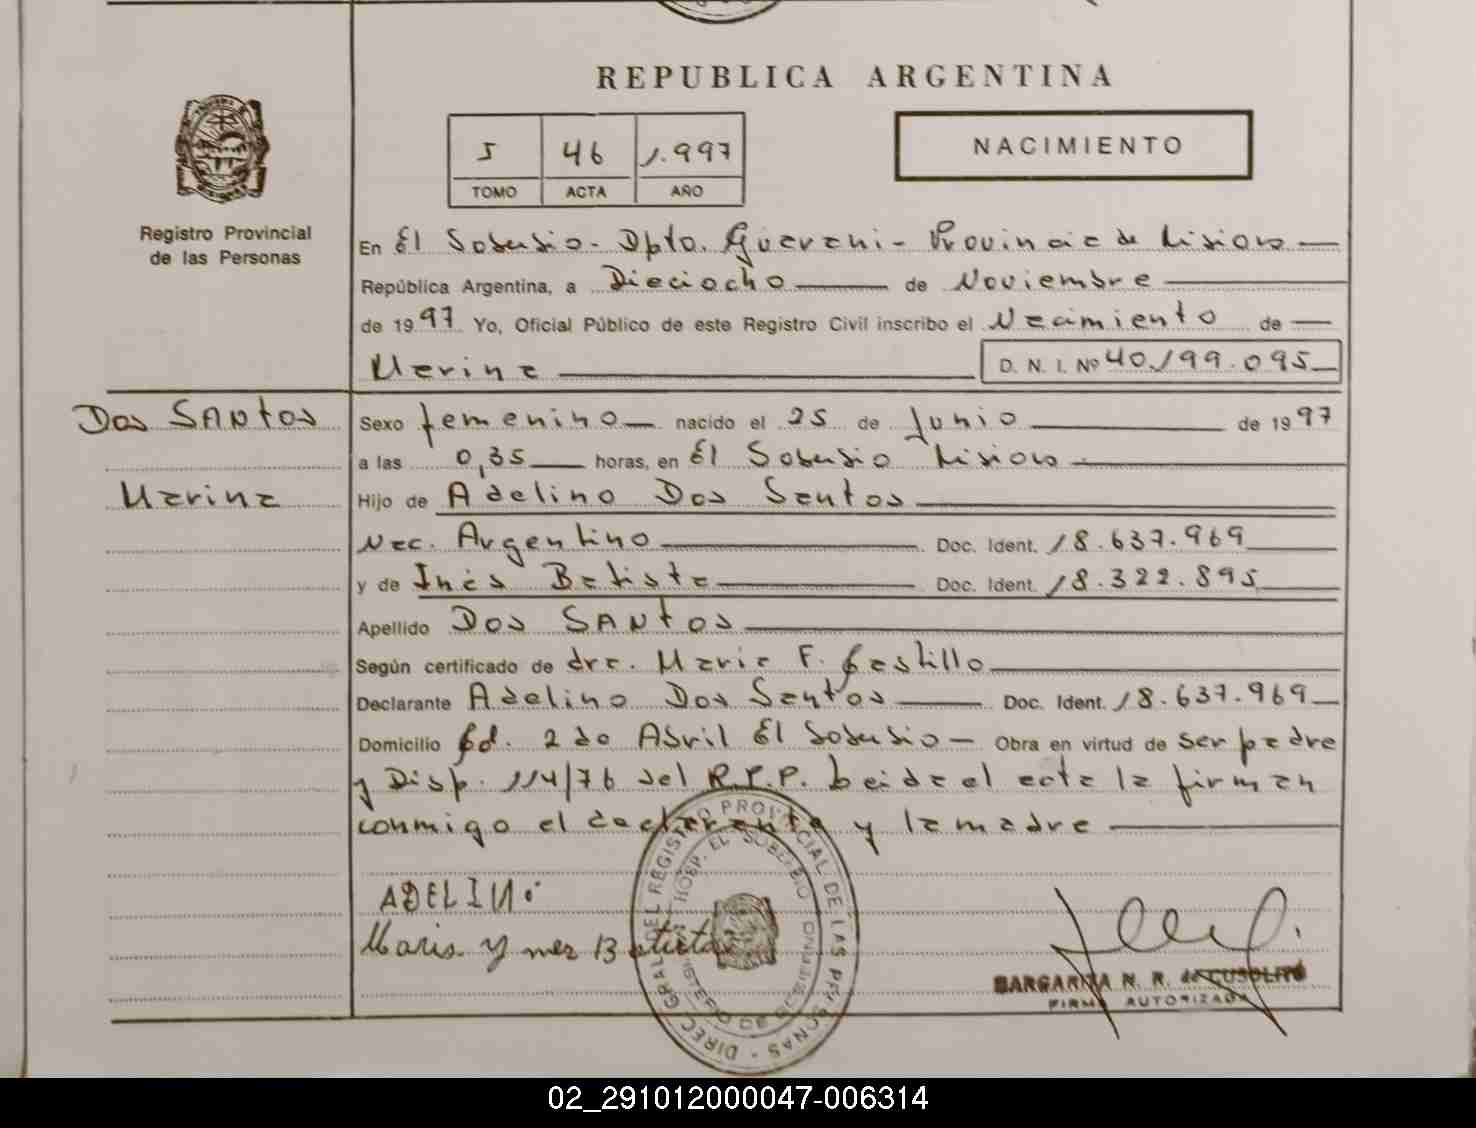 REPUBLICA ARGENTINA
5 46 1.997
TOMO ACTA AÑO
NACIMIENTO
Registro Provincial
de las Personas
En El Soberbio - Dpto. Guarani - Provincia de Misiones
República Argentina, a Dieciocho de Noviembre
de 1997 Yo, Oficial Público de este Registro Civil inscribo el Nacimiento de
Marina D. N. I. Nº 40.199.095
Dos SANtos
Sexo femenino nacido el 25 de Junio de 1997
a las 0,35 horas, en El Soberbio Misiones
Marina
Hijo de Adelino Dos Santos
Nac. Argentino Doc. Ident. 18.637.969
y de Inés Batista Doc. Ident. 18.322.895
Apellido Dos SANtos
Según certificado de dra. Maria F. Castillo
Declarante Adelino Dos Santos Doc. Ident. 18.637.969
Domicilio Bd. 2 de Abril El Soberbio - Obra en virtud de ser padre
y Disp. 114/76 del R.P.P. Leida el acta la firman
conmigo el declarante y la madre
ADELINO
Maria Ynes Batista
DIREC. GRAL. DEL REGISTRO PROVINCIAL DE LAS PERSONAS
HOSP. EL SOBERBIO
MARGARITA N. R. de CUSOLITO
FIRMA AUTORIZADA
02_291012000047-006314